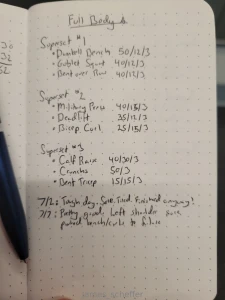 30
32
52
Full Body A
Superset #1
• Dumbell Bench 50/12/3
• Goblet Squat 40/12/3
• Bent over Row 40/12/3
Superset #2
• Military Press 40/15/3
• Deadlift 35/12/3
• Bicep Curl 25/15/3
Superset #3
• Calf Raise 40/30/3
• Crunches 50/3
• Bent Tricep 15/15/3
7/2: Tough day. Sore. Tired. Finished anyway!
7/7: Pretty good. Left shoulder sore
bench/curls to failure